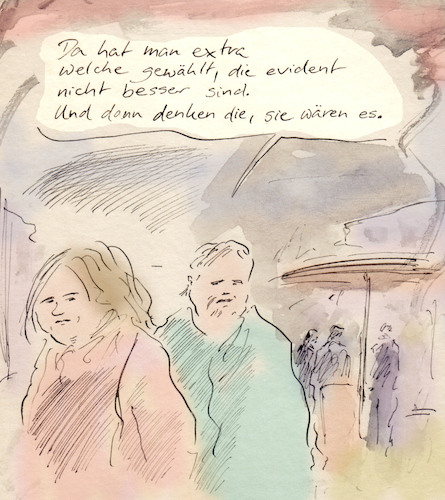 Da hat man extra
welche gewählt, die evident
nicht besser sind.
Und dann denken die, sie wären es.